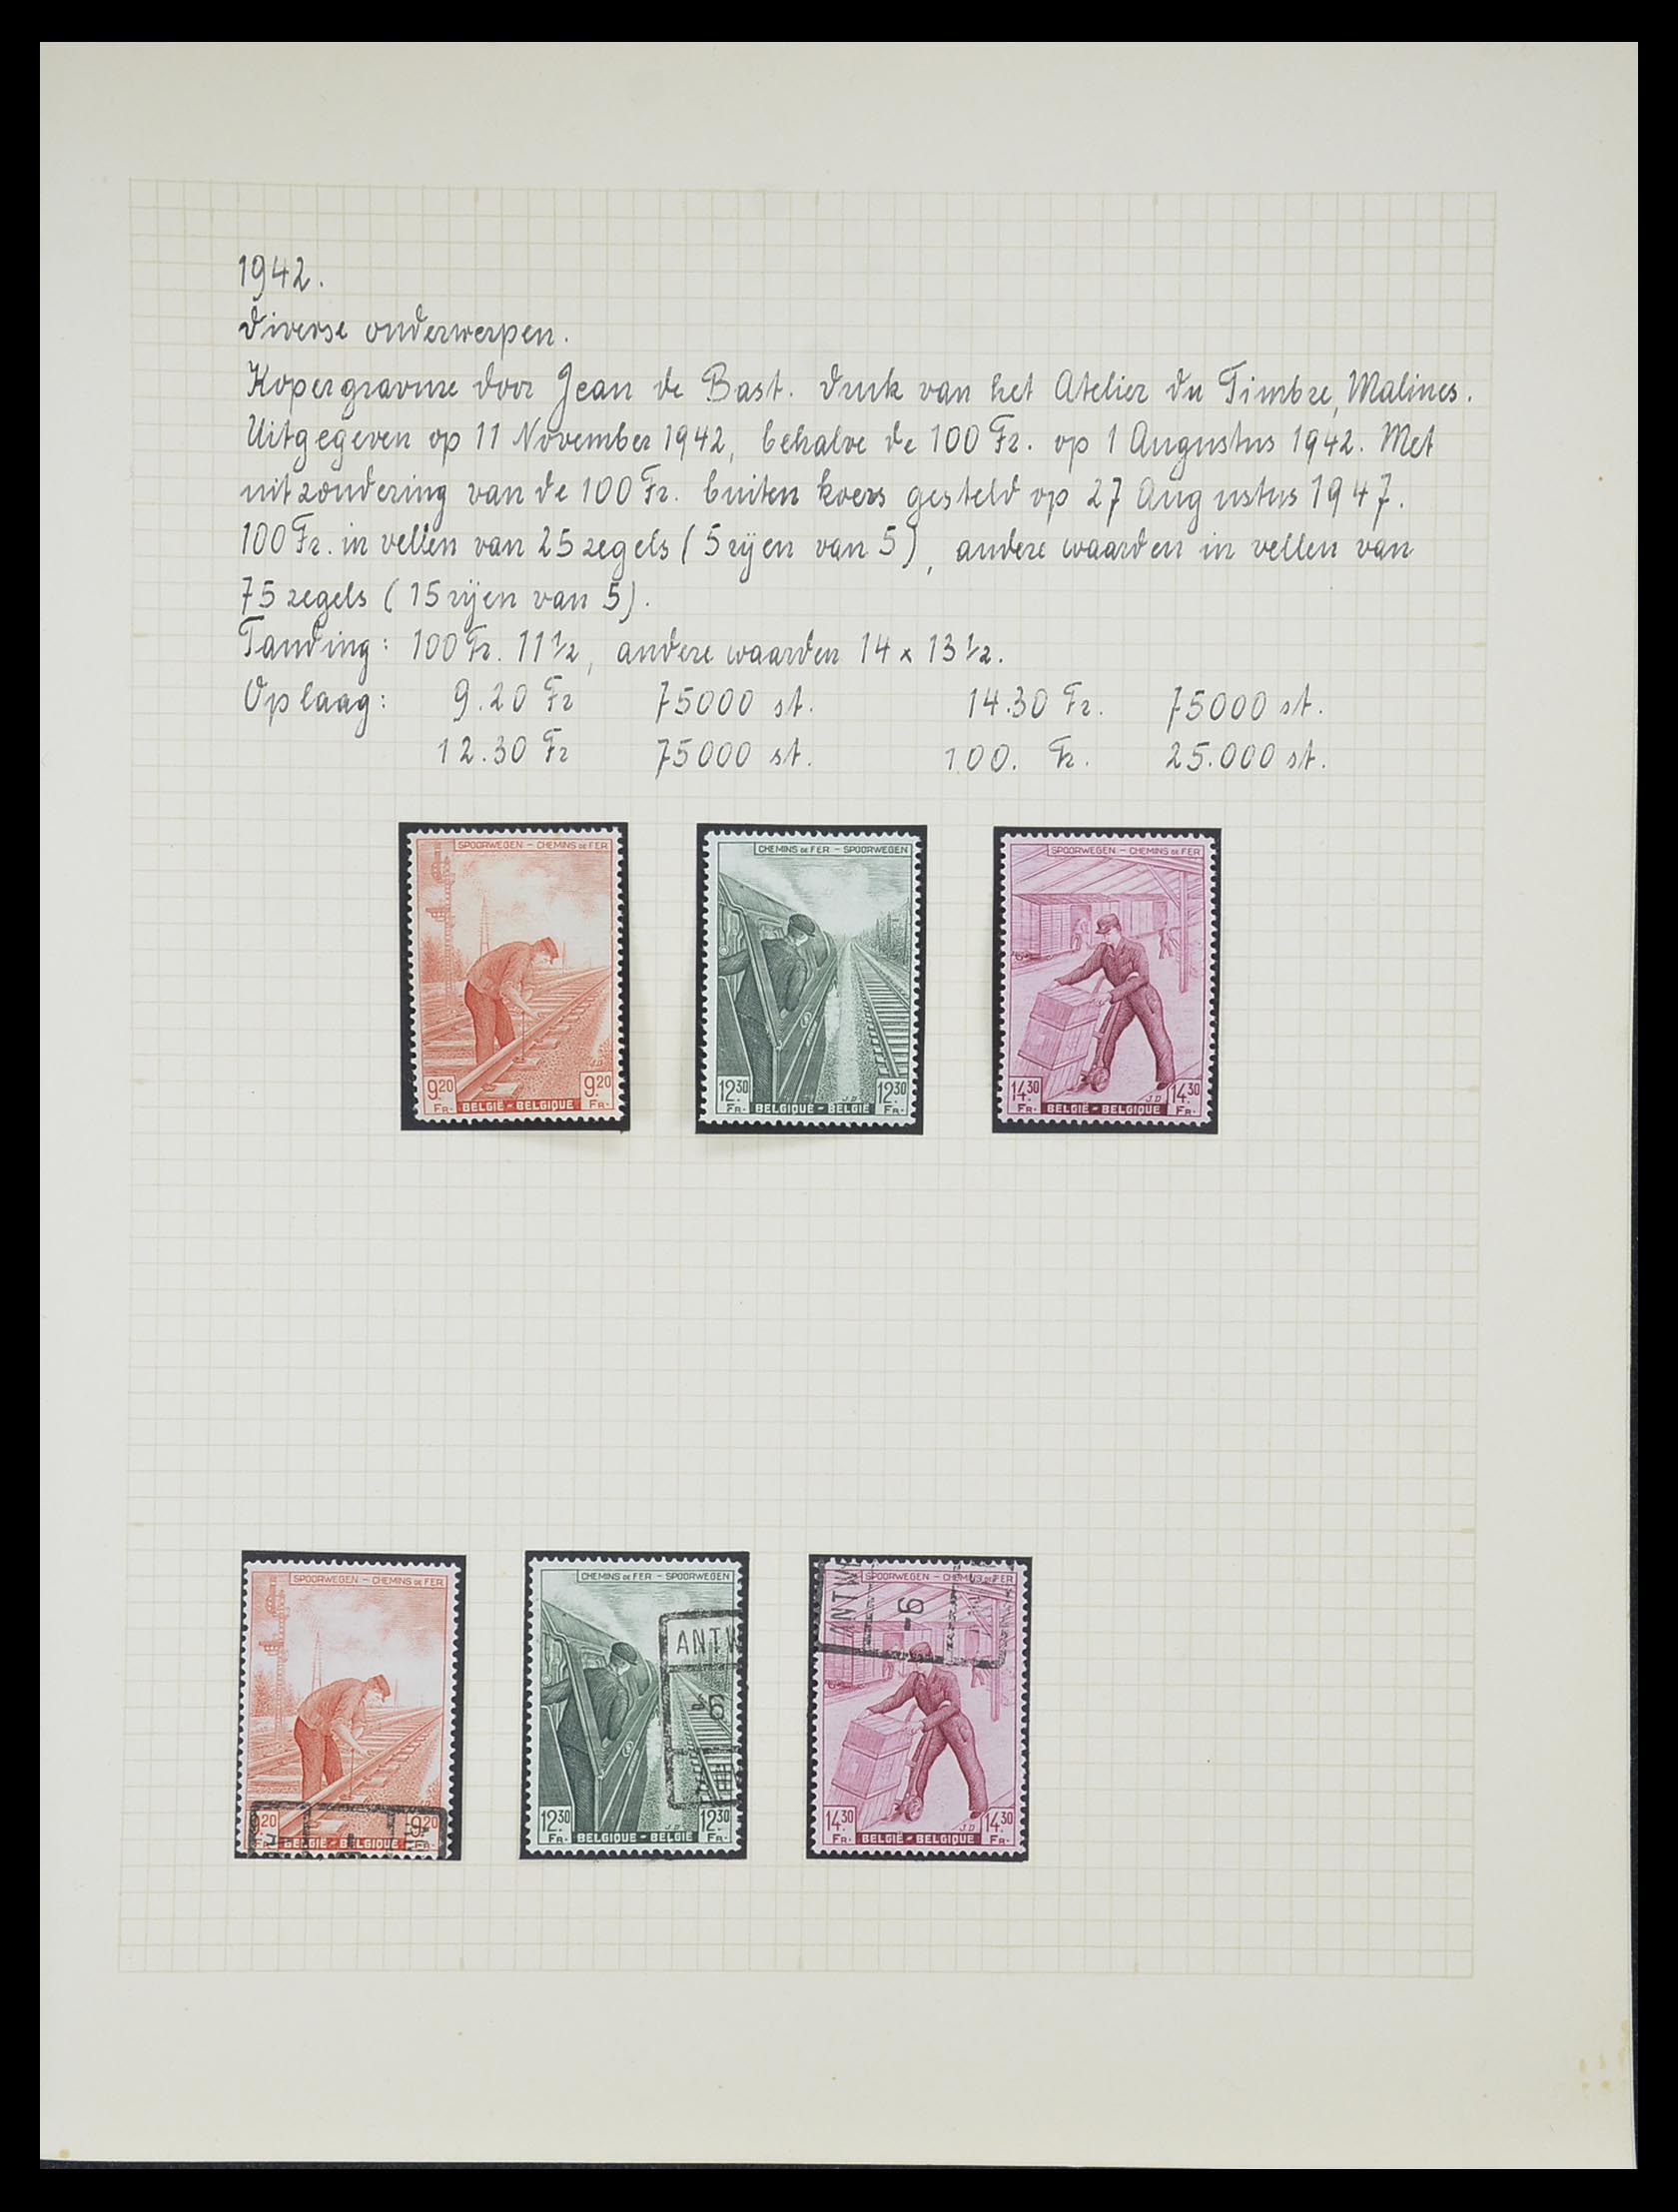 1942.
Diverse onderwerpen.
Kopergravure door Jean de Bast. Druk van het Atelier du Timbre, Malines.
Uitgegeven op 11 November 1942, behalve de 100 Fr. op 1 Augustus 1942. Met
uitzondering van de 100 Fr. buiten koers gesteld op 27 Augustus 1947.
100 Fr. in vellen van 25 zegels (5 rijen van 5), andere waarden in vellen van
75 zegels (15 rijen van 5).
Tanding: 100 Fr. 11 1/2, andere waarden 14 x 13 1/2.
Oplaag: 9.20 Fr 75000 st. 14.30 Fr. 75000 st.
12.30 Fr 75000 st. 100. Fr. 25.000 st.
SPOORWEGEN - CHEMINS DE FER
9.20 Fr. BELGIË - BELGIQUE 9.20 Fr.
J.D
CHEMINS DE FER - SPOORWEGEN
12.30 Fr. BELGIQUE - BELGIË 12.30 Fr.
J.D
SPOORWEGEN - CHEMINS DE FER
14.30 Fr. BELGIË - BELGIQUE 14.30 Fr.
J.D
SPOORWEGEN - CHEMINS DE FER
9.20 Fr. BELGIË - BELGIQUE 9.20 Fr.
CHEMINS DE FER - SPOORWEGEN
ANTW
-6
12.30 Fr. BELGIQUE - BELGIË 12.30 Fr.
J.D
SPOORWEGEN - CHEMINS DE FER
ANTW
-6
14.30 Fr. BELGIË - BELGIQUE 14.30 Fr.
J.D